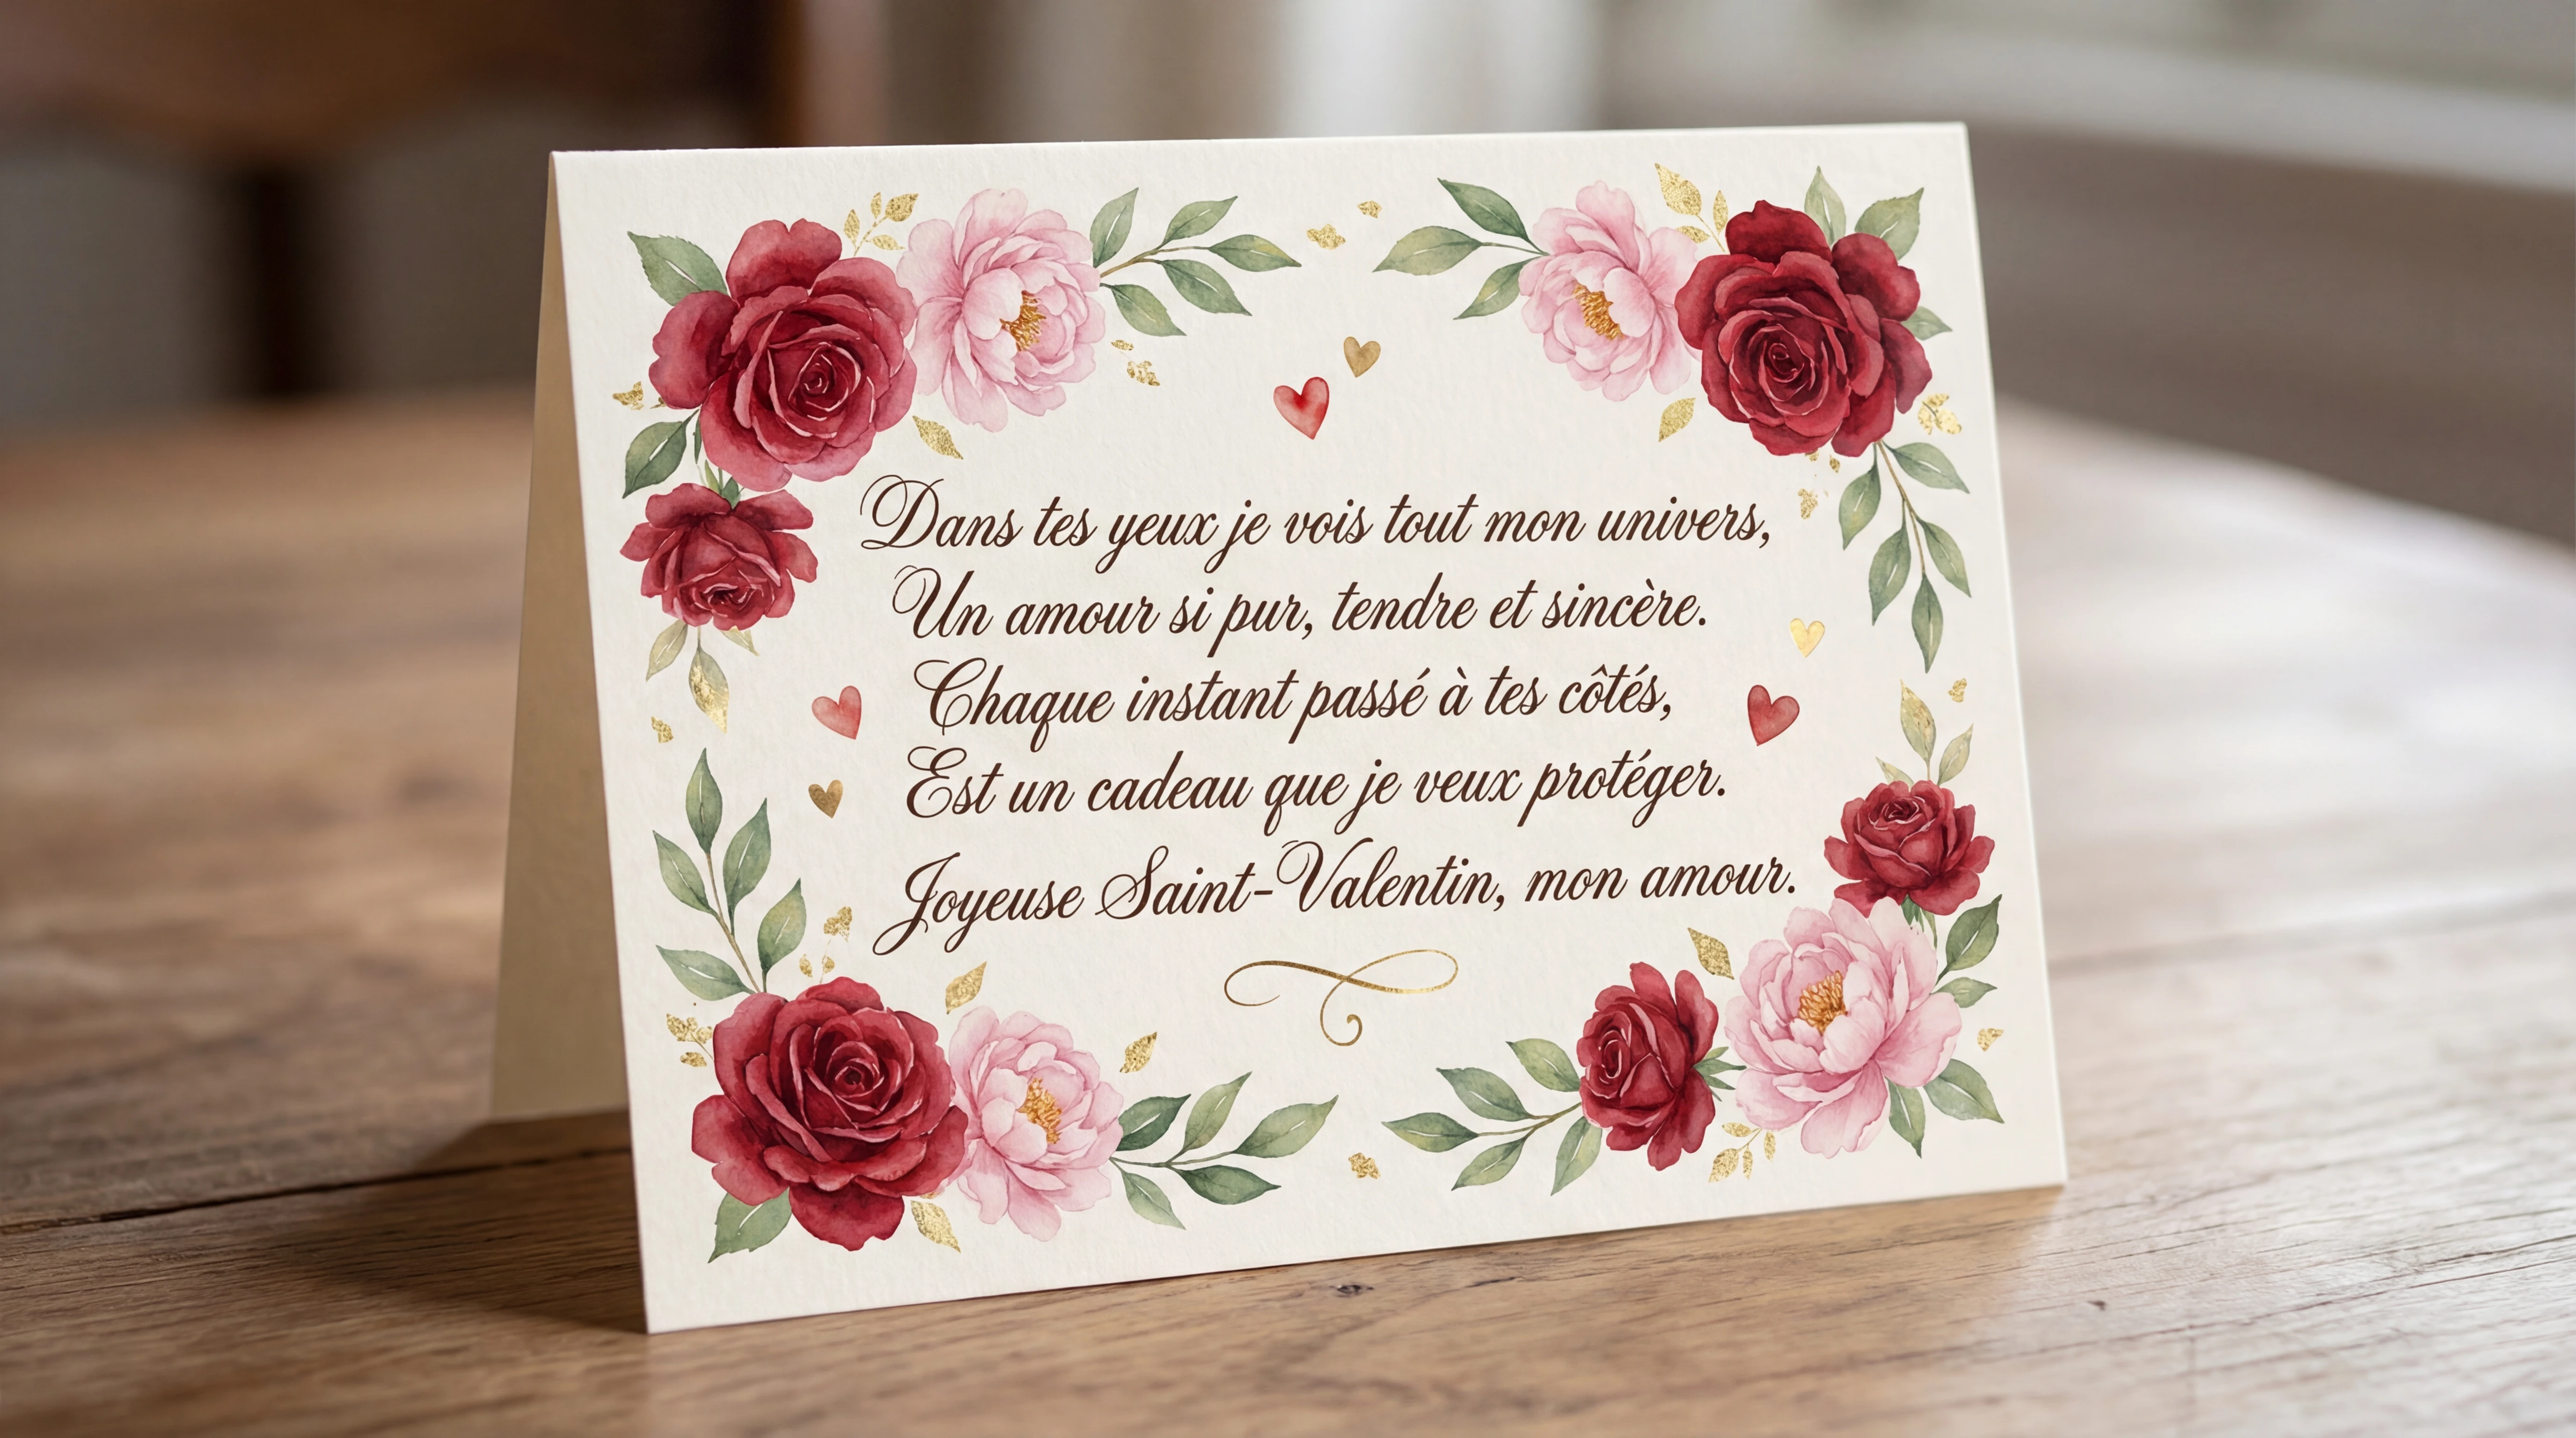 Dans tes yeux je vois tout mon univers,
Un amour si pur, tendre et sincère.
Chaque instant passé à tes côtés,
Est un cadeau que je veux protéger.
Joyeuse Saint-Valentin, mon amour.